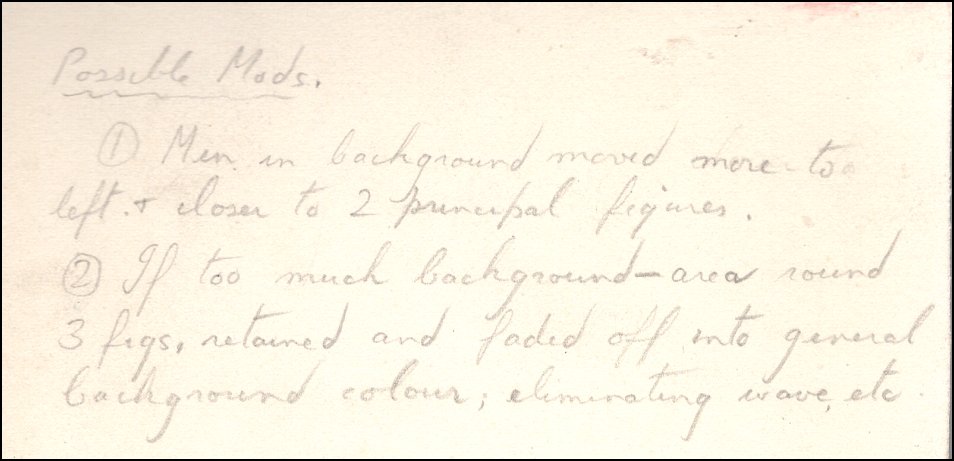 Possible Mods.
① Men in background moved more to
left. + closer to 2 principal figures.
② If too much background-area round
3 figs, retained and faded off into general
background colour; eliminating wave, etc.